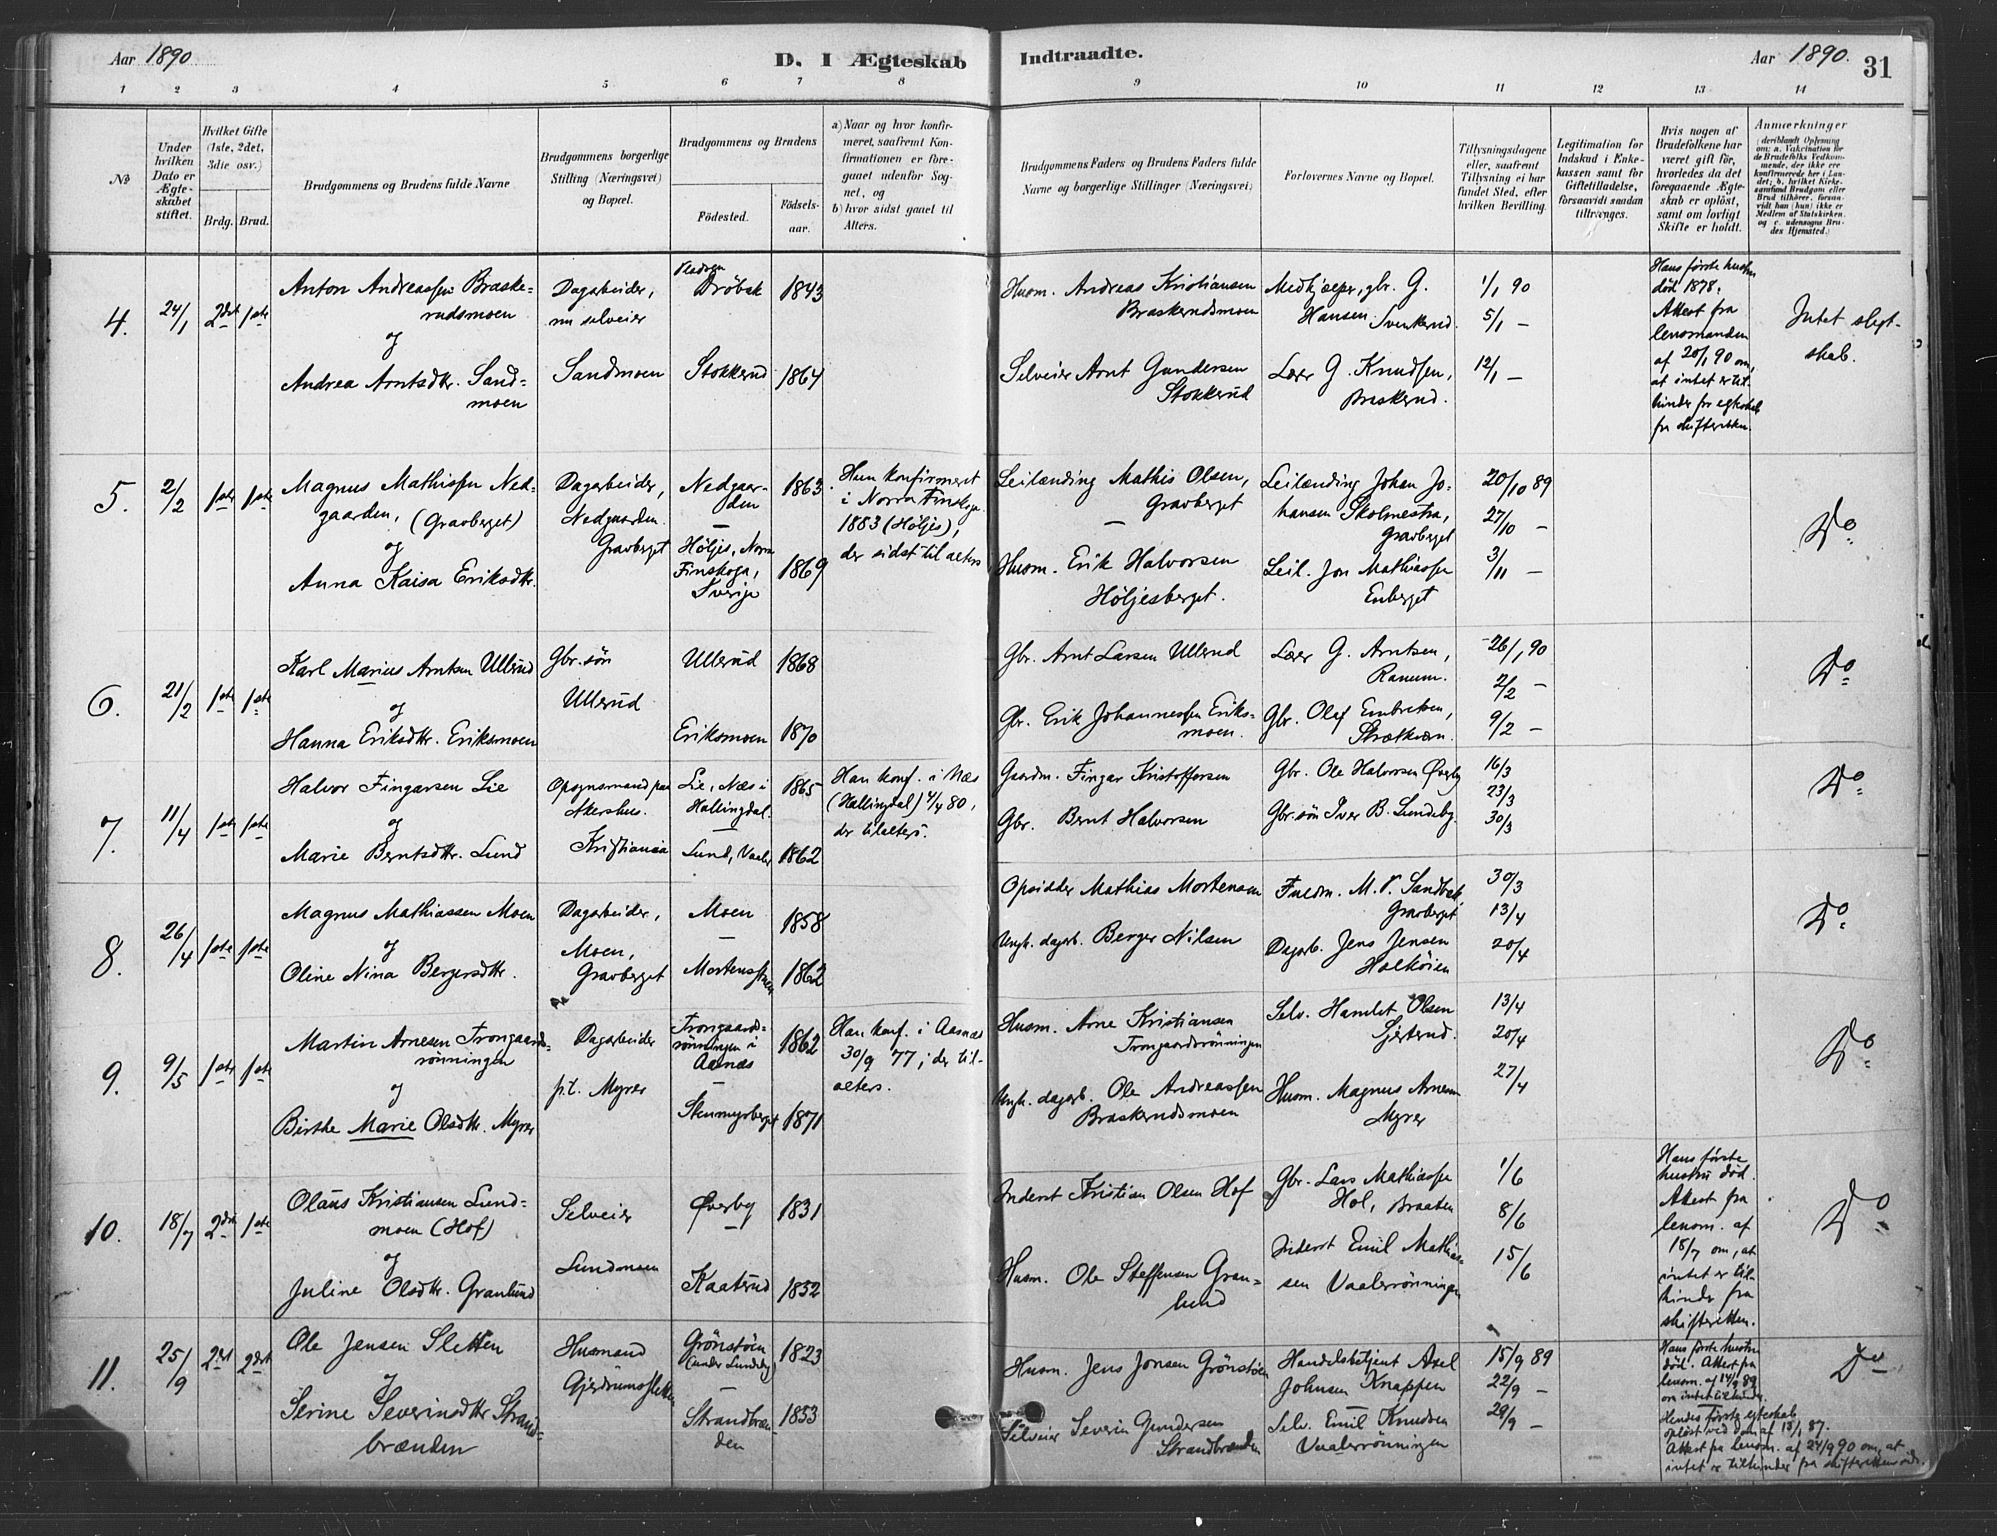 Aar 1890
D. I Ægteskab
Indtraadte.
Aar 1890.
31
1 2 3 4 5 6 7 8
9 10 11 12 13 14
No
Under
hvilken
Dato er
Ægte-
skabet
stiftet.
Hvilket Gifte
(1ste, 2det,
3die osv.)
Brdg. Brud.
Brudgommens og Brudens fulde Navne
Brudgommens borgerlige
Stilling (Næringsvei)
og Bopæl.
Brudgommens og Brudens
Födested.
Födsels-
aar.
a) Naar og hvor konfir-
meret, saafremt Kon-
firmationen er fore-
gaaet udenfor Sog-
net, og
b) hvor sidst gaaet til
Alters.
Brudgommens Faders og Brudens Faders fulde
Navne og borgerlige Stillinger (Næringsvei)
Forlovernes Navne og Bopæl.
Tillysningsdagene
eller, saafremt
Tillysning ei har
fundet Sted, efter
hvilken Bevilling.
Legitimation for
Indskud i Enke-
kassen samt for
Giftetilladelse,
forsaavidt saadan
tiltrænges.
Hvis nogen af
Brudefolkene har
været gift för,
hvorledes da det
foregaaende Ægte-
skab er oplöst,
samt om lovligt
Skifte er holdt.
Anmærkninger
(deriblandt Oplysning
om: a. Vakcination for
de Brudefolks Vedkom-
mende, der ikke ere
konfirmerede her i Lan-
det; b. hvilket Kirke-
samfund Brudgom eller
Brud tilhörer, forsaa-
vidt han (hun) ikke er
Medlem af Statskirken,
og c. udensogns Bru-
des Hjemsted.)
4. 24/1 2det 1ste
Anton Andreassen Braske-
rudsmoen
og
Andrea Arntsdtr. Sand-
moen
Dagarbeider,
nu selveier
Sandmoen
Dröbak 1843
Stokkerud 1864
Husm. Andreas Kristiansen
Braskerudsmoen
Selveier Arnt Gundersen
Stokkerud
Medhjælper, gbr. G.
Hansen Svenkerud.
Lærer G. Knudsen,
Braskerud.
1/1 90
5/1 —
12/1 —
Hans første hustru
död 1878.
Attest fra
lensmanden
af 20/1 90 om,
at intet er til
hinder for egteskab
fra skifteretten.
Intet slegt-
skab.
5. 2/2 1ste 1ste
Magnus Mathissen Ned-
gaarden, (Gravberget)
og
Anna Kaisa Eriksdtr.
Dagarbeider,
Nedgaarden
Gravberget
Nedgaar-
den 1863
Höljes, Norra
Finskoga,
Sverige 1869
Hun konfirmeret
i Norra Finskoga
1883 (Höljes),
der sidst til alters
Leilænding Mathis Olsen,
Gravberget
Husm. Erik Halvorsen
Höljesberget.
Leilænding Johan Jo-
hansen Skolmestra,
Gravberget
Leil. Jon Mathiassen
Enberget
20/10 89
27/10 —
3/11 —
Do
6. 21/2 1ste 1ste
Karl Marius Arntsen Ullerud
og
Hanna Eriksdtr. Eriksmoen
Gbr. sön
Ullerud
Ullerud 1868
Eriksmoen 1870
Gbr. Arnt Larsen Ullerud
Gbr. Erik Johannessen Eriks-
moen.
Lærer G. Arntsen,
Ranum.
Gbr. Olef Embretsen,
26/1 90
2/2 —
9/2 —
Do
7. 11/4 1ste 1ste
Halvor Fingarsen Lie
og
Marie Berntsdtr. Lund
Opsynsmand paa
Akershus.
Kristiania
Lie, Næs i
Hallingdal. 1865
Lund, Vaaler 1862
Han konf. i Næs
(Hallingdal) 4/4 80,
der til alters.
Gaardm. Fingar Kristoffersen
Gbr. Bernt Halvorsen
Gbr. Ole Halvorsen Øverby
Gbr. sön Iver B. Lundeby.
16/3
23/3
30/3
Do
8. 26/4 1ste 1ste
Magnus Mathiassen Moen
og
Oline Nina Bergersdtr.
Dagarbeider,
Moen,
Gravberget
Moen 1858
1862
Opsidder Mathias Mortensen
Ungk. dagarb. Berger Nilsen
M. P. Sandbæk
Gravberget
Dagarb. Jens Jensen
Halköien
30/3
13/4
20/4
Do
9. 9/5 1ste 1ste
Martin Arnesen Trongaards-
rönningen
og
Birthe Marie Olsdtr. Myrer
Dagarbeider
p.t. Myrer
Trongaards-
rönningen i
Aasnæs 1862
Stenmyrberget 1871
Han konf. i Aasnæs
30/9 77; der til-
alters.
Husm. Arne Kristiansen
Trongaardsrönningen
Ungk. dagarb. Ole Andreassen
Braskerudsmoen
Selv. Hamlet Olsen
Gjerterud.
Husm. Magnus Arnesen
Myrer
13/4
20/4
27/4
Do
10. 18/7 2det 1ste
Olaus Kristiansen Lund-
moen (Hof)
og
Juline Olsdtr. Granlund
Selveier
Lundmoen
Øverby 1831
Kaaterud 1852
Inderst Kristian Olsen Hof
Husm. Ole Steffensen Gran-
lund
Gbr. Lars Mathiassen
Hol, Braaten
Inderst Emil Mathias-
sen Vaalerrönningen
1/6
8/6
15/6
Hans første
hustru död.
Attest fra
lensm. af
18/7 om, at
intet er til-
hinder fra
skifteretten.
Do
11. 25/9 2det 2det
Ole Jensen Sletten
og
Serine Severinsdtr. Strand-
brænden
Husmand
Gjerdrumssletten
Grönstöen
(under Lundeby) 1823
Strandbræn-
den 1853
Husm. Jens Jonsen Grönstöen
Selveier Severin Gundersen
Strandbrænden
Handelsbetjent Axel
Johnsen Knappen
Selv. Emil Knudsen
Vaalerrönningen
15/9 89
22/9 —
29/9 —
Hans første hustru
död. Attest fra
lensm. af 14/9 89
om intet tilhinder.
Hendes første egteskab
oplöst ved dom af 13/1 87.
Attest fra lensm. af 24/9 90 om, at
intet er tilhinder fra skifterettens side.
Do